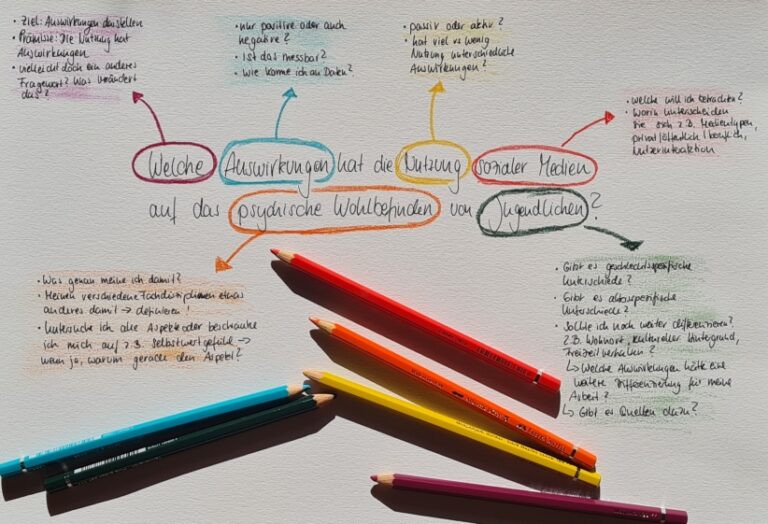 • Ziel: Auswirkungen darstellen
• Prämisse: Die Nutzung hat
Auswirkungen
• vielleicht doch ein anderes
Fragewort? Was verändert
das?
• nur positive oder auch
negative?
• Ist das messbar?
• Wie komme ich an Daten?
• passiv oder aktiv?
• hat viel vs wenig
Nutzung unterschiedliche
Auswirkungen?
• welche will ich betrachten?
• worin unterscheiden
sie sich z.B. Medientypen,
privat/öffentlich/beruflich,
Nutzerinteraktion
Welche Auswirkungen hat die Nutzung sozialer Medien
auf das psychische Wohlbefinden von Jugendlichen?
• Was genau meine ich damit?
• Meinen verschiedene Fachdisziplinen etwas
anderes damit → definieren!
• Untersuche ich alle Aspekte oder beschränke
ich mich auf z.B. Selbstwertgefühl →
wenn ja, warum gerade den Aspekt?
• Gibt es geschlechtsspezifische
Unterschiede?
• Gibt es altersspezifische
Unterschiede?
• Sollte ich noch weiter differenzieren?
z.B. Wohnort, kultureller Hintergrund,
Freizeitverhalten?
↳ Welche Auswirkungen hätte eine
weitere Differenzierung für meine
Arbeit?
↳ Gibt es Quellen dazu?